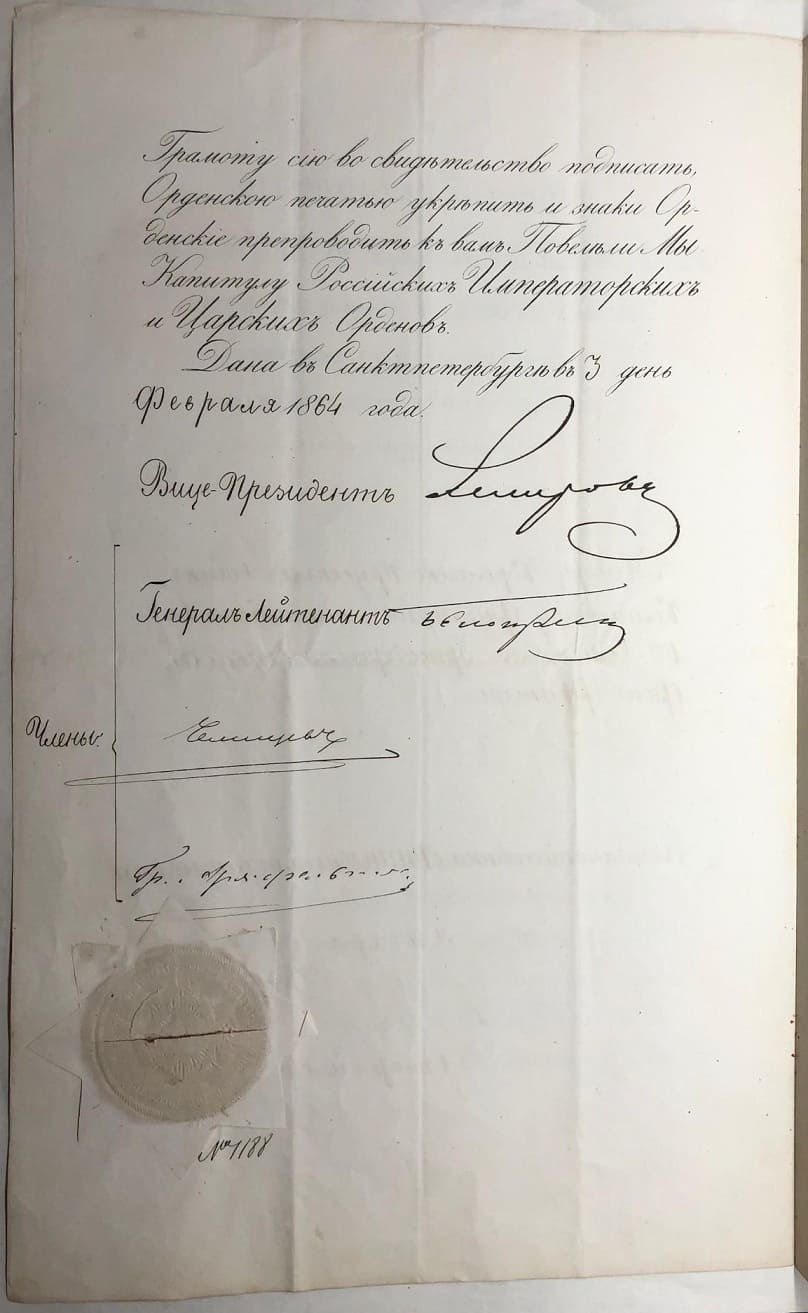 Грамоту сію во свидѣтельство подписать,
Орденскою печатью укрѣпить и знаки Ор-
денскіе препроводить къ вамъ Повелѣли Мы
Капитулу Россійскихъ Императорскихъ
и Царскихъ Орденовъ.
Дана въ Санктпетербургѣ въ 3 день
Февраля 1864 года.
Вице-Президентъ
Генералъ Лейтенантъ
Члены:
Гр.
№ 1188